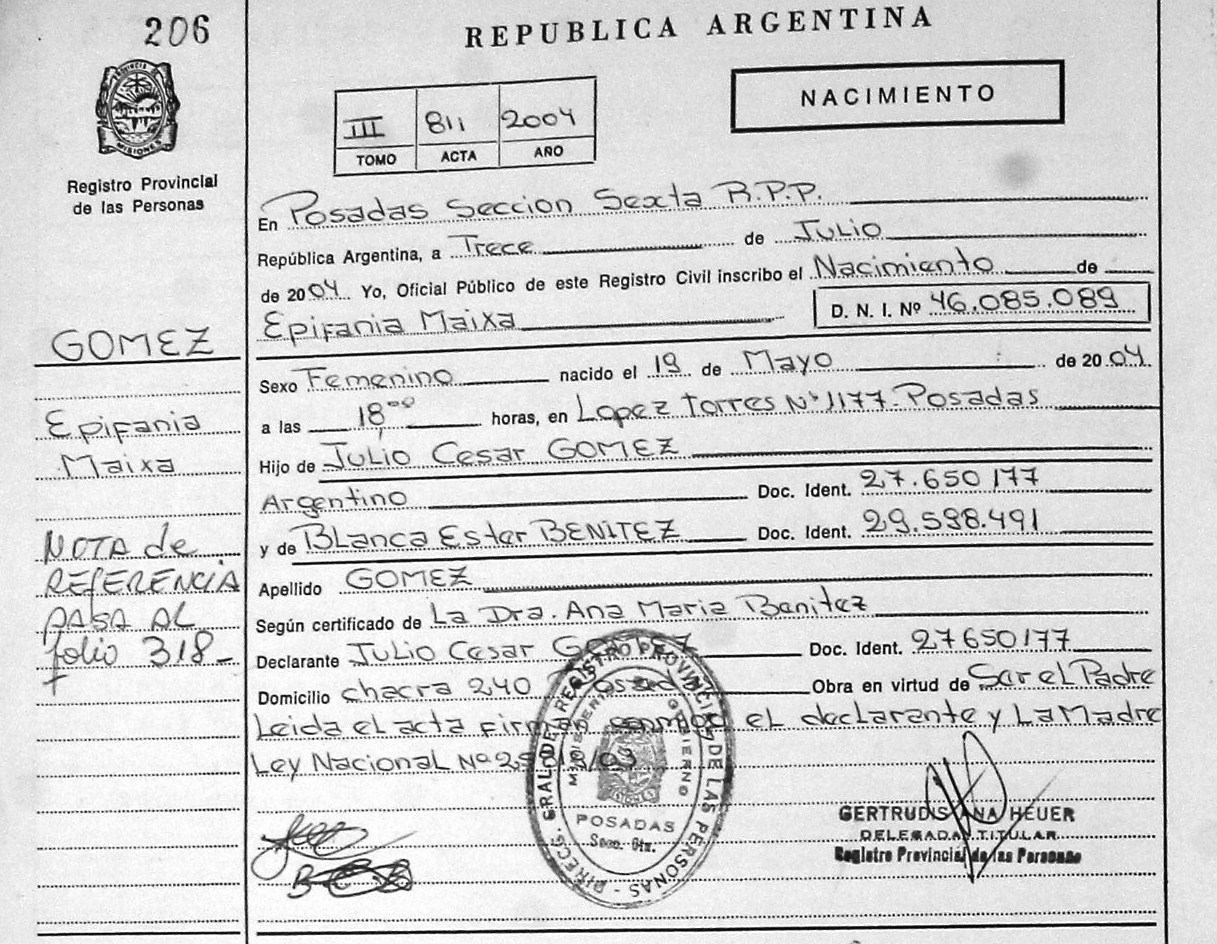 206
REPUBLICA ARGENTINA
PROVINCIA
MISIONES
Registro Provincial
de las Personas
III 811 2004
TOMO ACTA AÑO
NACIMIENTO
En Posadas Seccion Sexta R.P.P.
República Argentina, a Trece de Julio
de 2004 Yo, Oficial Público de este Registro Civil inscribo el Nacimiento de
Epifania Maixa D. N. I. Nº 46.085.089
GOMEZ
Epifania
Maixa
NOTA de
REFERENCIA
PASA AL
folio 318-
Sexo Femenino nacido el 19 de Mayo de 2004
a las 18ºº horas, en Lopez Torres Nº 1177. Posadas
Hijo de Julio Cesar GOMEZ
Argentino Doc. Ident. 27.650 177
y de Blanca Ester BENITEZ Doc. Ident. 29.598.491
Apellido GOMEZ
Según certificado de La Dra. Ana Maria Benitez
Declarante Julio Cesar Gomez Doc. Ident. 27650177
Domicilio chacra 240 Posadas Obra en virtud de Ser el Padre
Leida el acta firman conmigo el declarante y La Madre
Ley Nacional Nº
DIRECC. GRAL. DEL REGISTRO PROVINCIAL DE LAS PERSONAS
GOBIERNO
MISIONES
POSADAS
Secc. 6ta.
GERTRUDIS ANA HEUER
DELEGADA TITULAR
Registro Provincial de las Personas